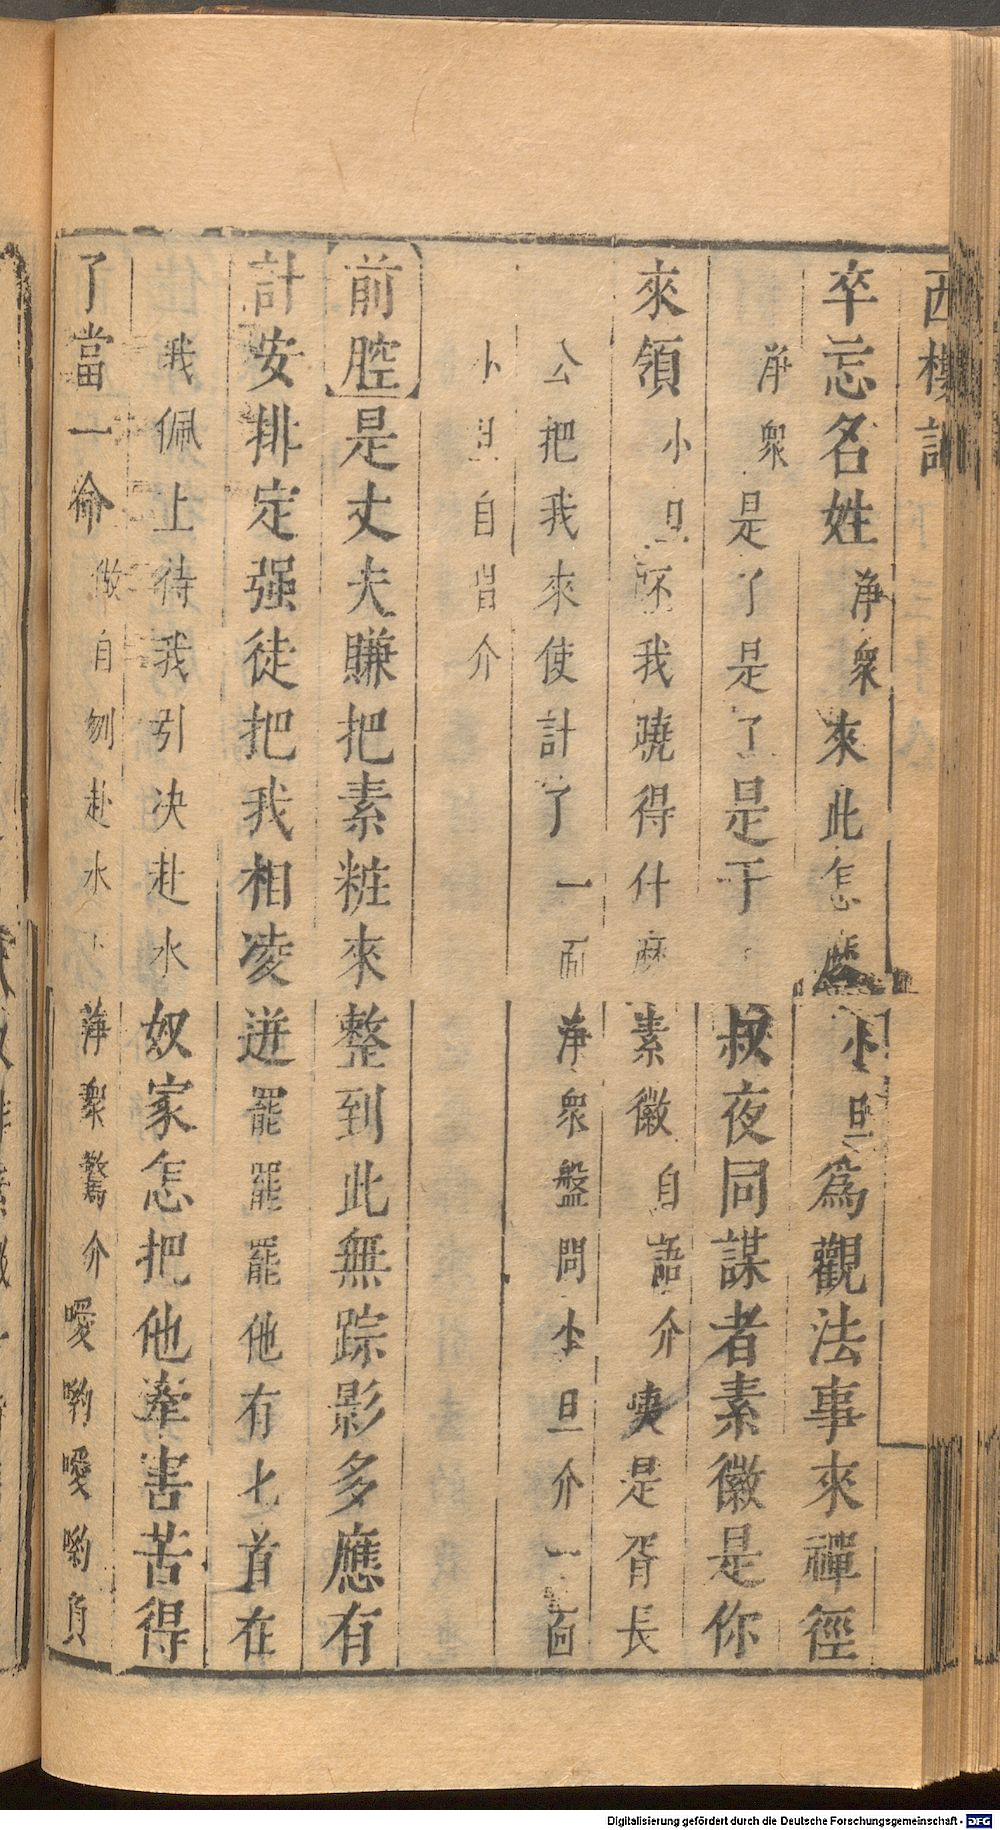 西樓記
卒忘名姓淨衆來此怎麽小旦爲觀法事來禪徑
淨衆是了是了是于叔夜同謀者素徽是你
來領小旦不我曉得什麽素徽自語介噢是胥長
公把我來使計了一面淨衆盤問小旦介一面
小旦自省介
前腔是丈夫賺把素粧來整到此無踪影多應有
計安排定强徒把我相凌逬罷罷罷他有匕首在
我佩上待我引决赴水奴家怎把他牽害苦得
了當一命做自刎赴水淨衆驚介噯喲噯喲負
Digitalisierung gefördert durch die Deutsche Forschungsgemeinschaft - DFG